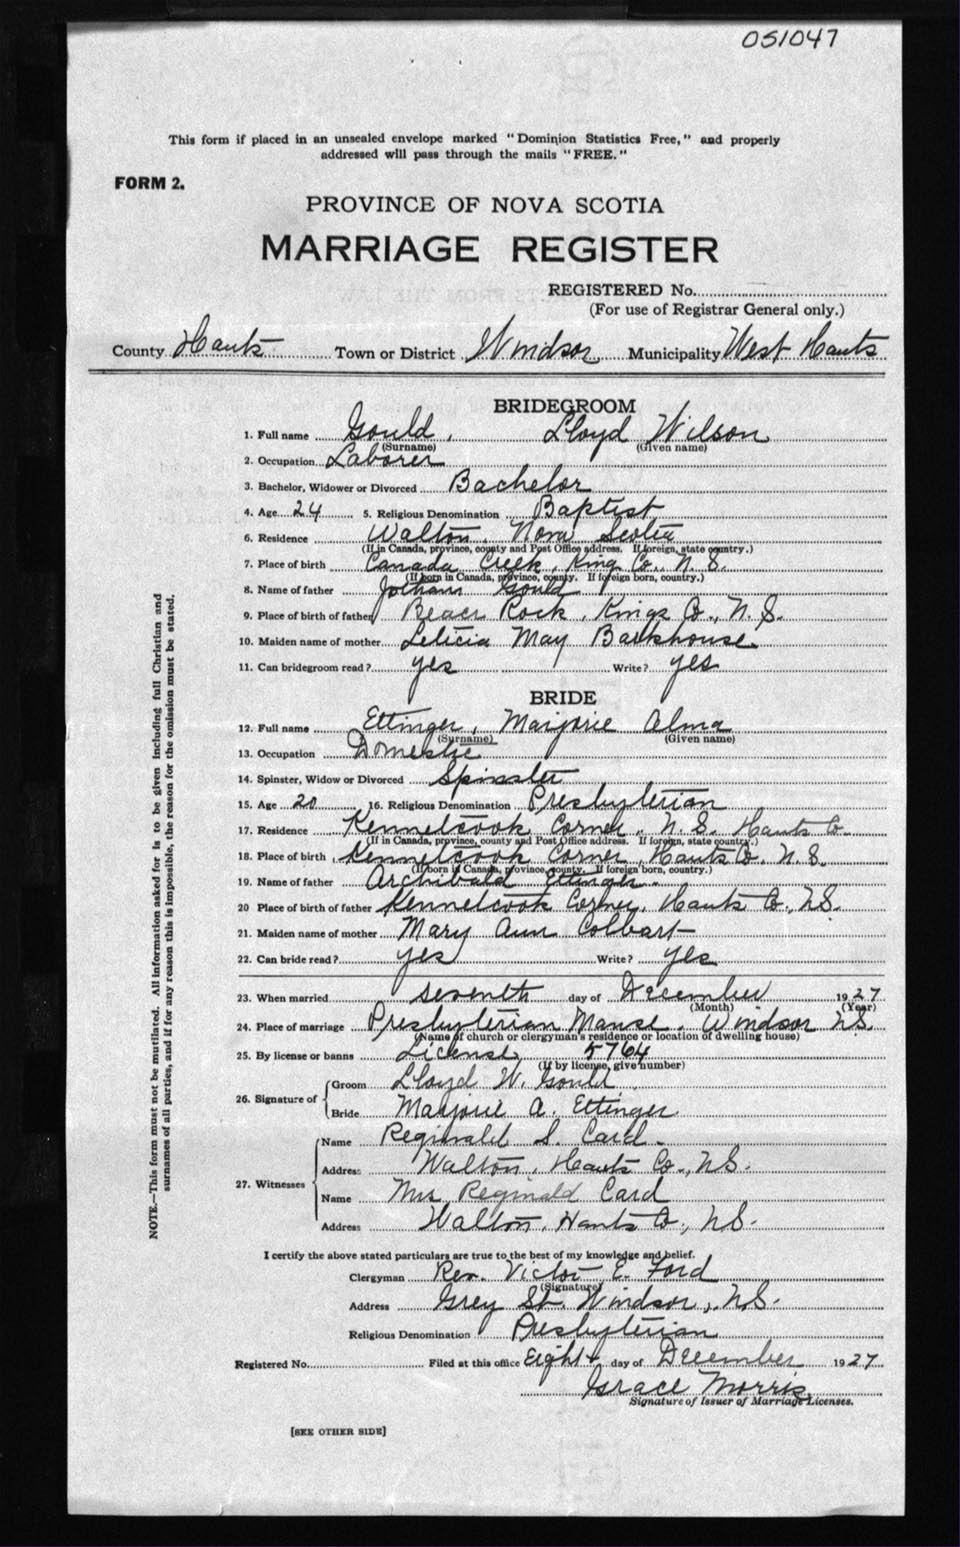 051047
This form if placed in an unsealed envelope marked "Dominion Statistics Free," and properly
addressed will pass through the mails "FREE."
FORM 2.
PROVINCE OF NOVA SCOTIA
MARRIAGE REGISTER
REGISTERED No.
(For use of Registrar General only.)
County Hants Town or District Windsor Municipality West Hants
BRIDEGROOM
1. Full name Gould, Lloyd Wilson
(Surname) (Given name)
2. Occupation Laborer
3. Bachelor, Widower or Divorced Bachelor
4. Age 24 5. Religious Denomination Baptist
6. Residence Walton, Nova Scotia
(If in Canada, province, county and Post Office address. If foreign, state country.)
7. Place of birth Canada Creek, King Co., N.S.
(If born in Canada, province, county. If foreign born, country.)
8. Name of father Jotham Gould
9. Place of birth of father Beaer Rock, Kings Co., N.S.
10. Maiden name of mother Leticia May Barkhouse
11. Can bridegroom read? yes Write? yes
BRIDE
12. Full name Ettinger, Marjorie Alma
(Surname) (Given name)
13. Occupation Domestic
14. Spinster, Widow or Divorced Spinster
15. Age 20 16. Religious Denomination Presbyterian
17. Residence Kennetcook Corner, N.S. Hants Co.
(If in Canada, province, county and Post Office address. If foreign, state country.)
18. Place of birth Kennetcook Corner, Hants Co. N.S.
(If born in Canada, province, county. If foreign born, country.)
19. Name of father Archibald Ettinger.
20 Place of birth of father Kennetcook Corner, Hants Co., N.S.
21. Maiden name of mother Mary Ann Colbart
22. Can bride read? yes Write? yes
23. When married seventh day of December 1927
(Month) (Year)
24. Place of marriage Presbyterian Manse, Windsor N.S.
(Name of church or clergyman's residence or location of dwelling house)
25. By license or banns License, 5764
(If by license, give number)
26. Signature of Groom Lloyd W. Gould
Bride Marjorie A. Ettinger
27. Witnesses Name Reginald S. Card.
Address Walton, Hants Co., N.S.
Name Mrs Reginald Card
Address Walton, Hants Co., N.S.
I certify the above stated particulars are true to the best of my knowledge and belief.
Clergyman Rev. Victor E. Ford
(Signature)
Address Grey St. Windsor, N.S.
Religious Denomination Presbyterian
Registered No. Filed at this office Eight day of December 1927
Grace Morris
Signature of Issuer of Marriage Licenses.
[SEE OTHER SIDE]
NOTE.—This form must not be mutilated. All information asked for is to be given including full Christian and
surnames of all parties, and if for any reason this is impossible, the reason for the omission must be stated.